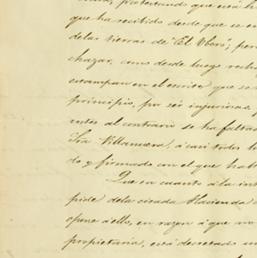 que ha recibido desde que se en
de las tierras de "El Obero", per
chazar, como desde luego recha
estampan en el escrito que se
principio, por ser injuriosas y
entes al contrario se ha faltad
Sra Villanueva, á casi todos l
do y firmado con el que habl
Que en cuanto á la ins
pide de la citada Hacienda
opone á ello, en razon á que no
propietaria, está decretado un